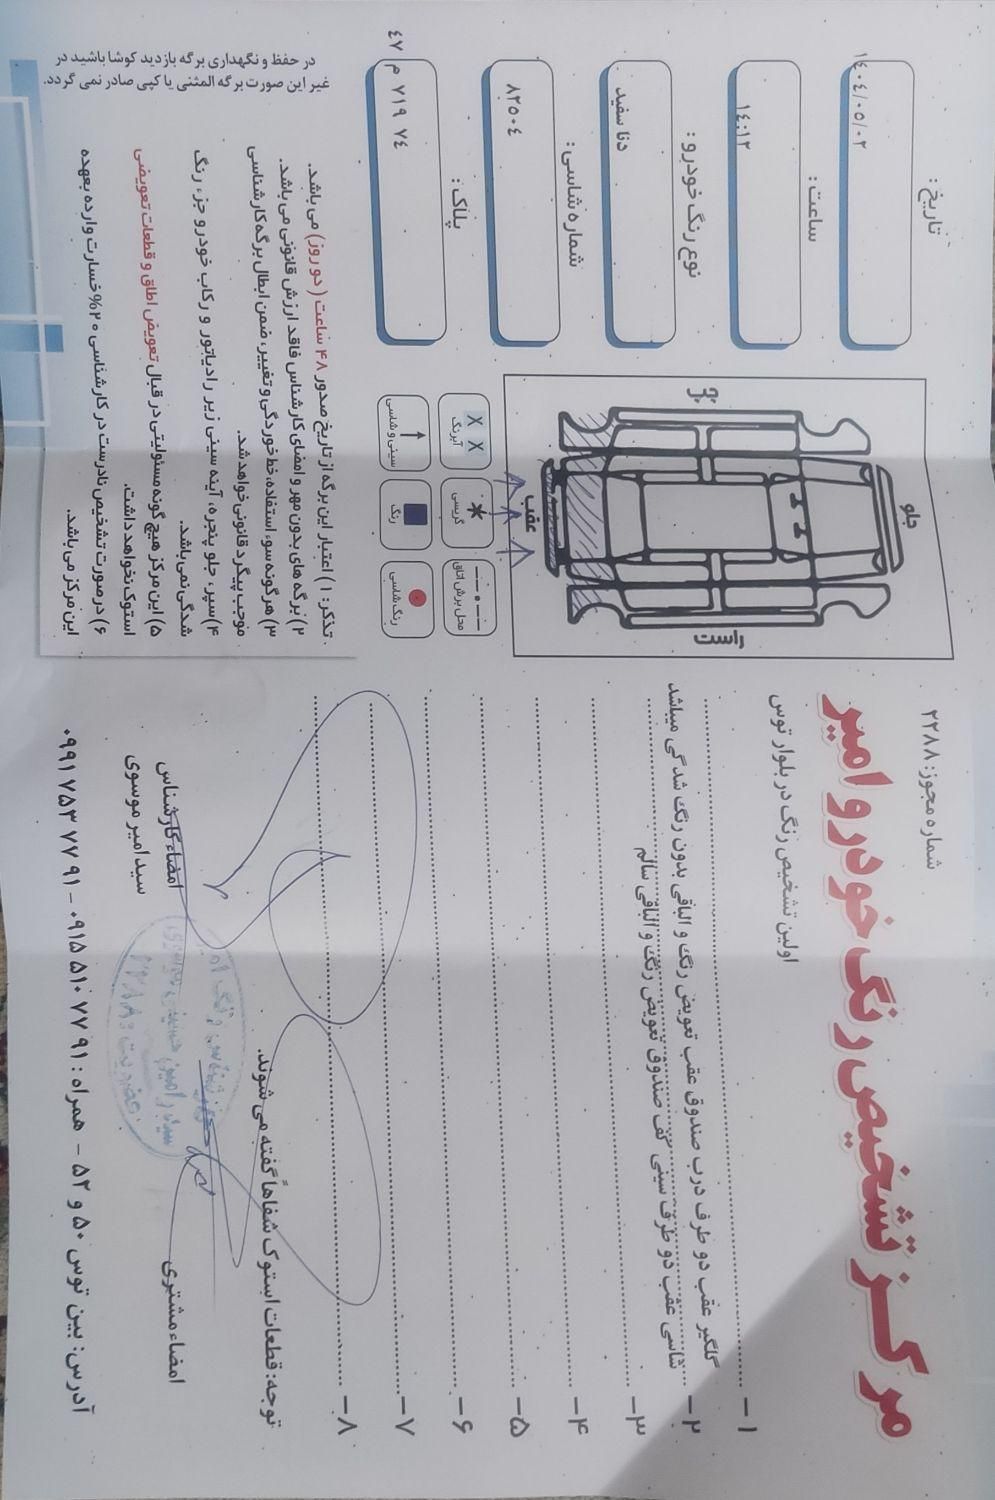 شماره مجوز: ۲۲۸۸
مرکز تشخیص رنگ خودرو امیر
اولین تشخیص رنگ در بلوار توس
تاریخ:
۱۴۰۴/۰۵/۰۲
ساعت:
۱۴:۱۲
نوع رنگ خودرو:
دنا سفید
شماره شاسی:
۸۲۵۰۴
پلاک:
۴۷ م ۷۱۹ ۷۴
در حفظ و نگهداری برگه بازدید کوشا باشید در
غیر این صورت برگه المثنی یا کپی صادر نمی گردد.
جلو
راست
عقب
آبرنگ
گریسی
محل برش اتاق
سینی و شاسی
رنگ
رنگ شاسی
تذکر: ۱) اعتبار این برگه از تاریخ صدور ۴۸ ساعت (دو روز) می باشد.
۲) برگه های بدون مهر و امضای کارشناس فاقد ارزش قانونی می باشد.
۳) هرگونه سوء استفاده، خط خوردگی و تغییر، ضمن ابطال برگه کارشناسی
موجب پیگرد قانونی خواهد شد.
۴) سپر، جلو پنجره، آینه سینی زیر رادیاتور و رکاب خودرو جزء رنگ
شدگی نمی باشد.
۵) این مرکز هیچ گونه مسئولیتی در قبال تعویض اطاق و قطعات تعویضی
استوک نخواهد داشت.
۶) در صورت تشخیص نادرست در کارشناسی ۲۰% خسارت وارده بعهده
این مرکز می باشد.
۱-
گلگیر عقب دو طرف درب صندوق عقب تعویض رنگ و الباقی بدون رنگ شدگی میباشد
۲-
شاسی عقب دو طرف سینی کف صندوق تعویض رنگ و الباقی سالم
۳-
۴-
۵-
۶-
۷-
۸-
توجه: قطعات استوک شفاهاً گفته می شوند.
امضاء کارشناس
سید امیر موسوی
امضاء مشتری
آدرس: بین توس ۵۰ و ۵۲ - همراه: ۰۹۱۵ ۵۱۰ ۷۷ ۹۱ - ۰۹۹۱ ۷۵۳ ۷۷ ۹۱